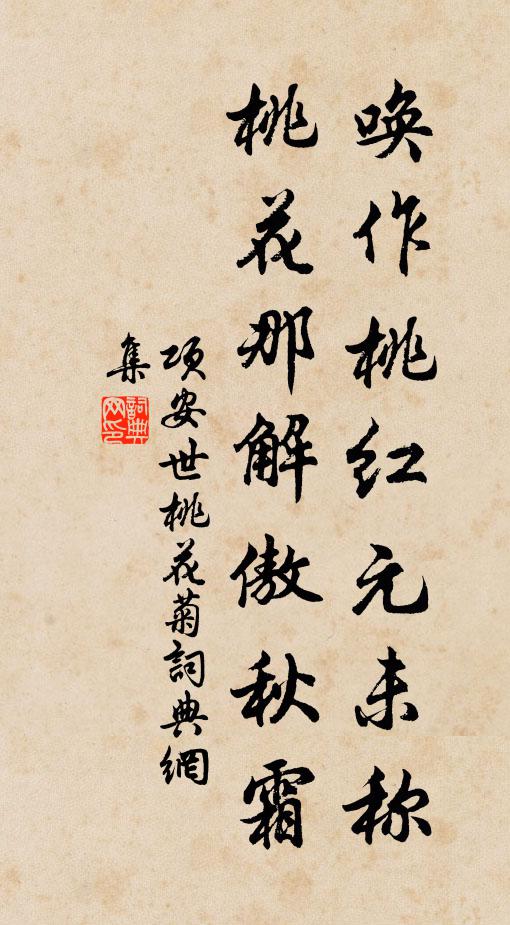 唤作桃红元未称
桃花那解傲秋霜
项安世桃花菊詞典網
集
詞典網印